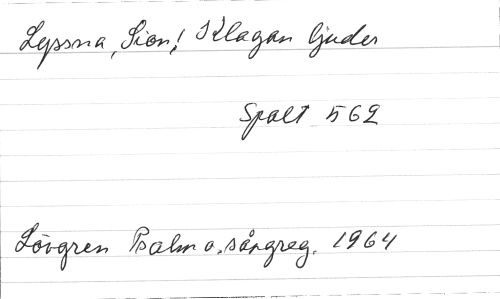 Lyssna, Sion! Klagan ljuder
Spalt 562
Lövgren Psalm o. sångreg. 1964